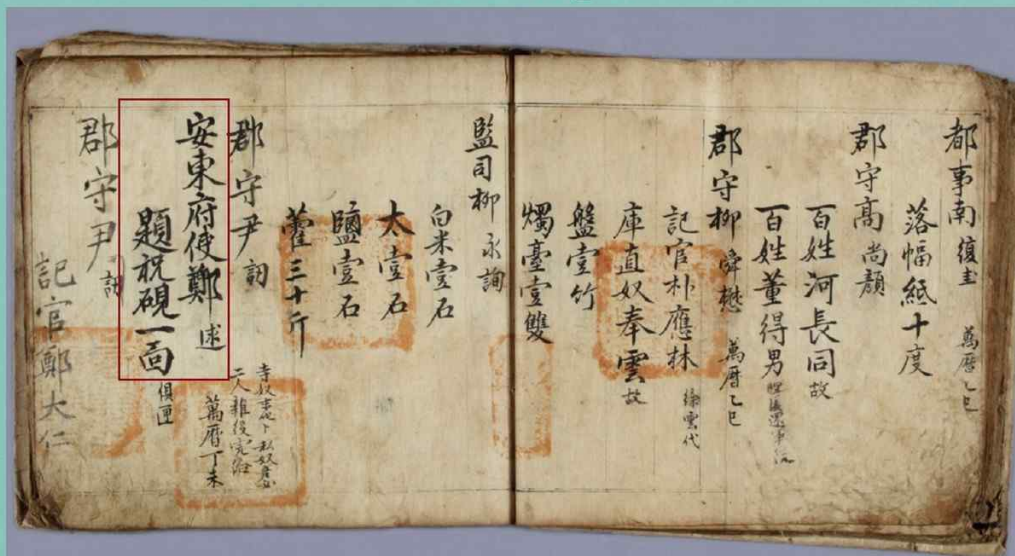 都事南 復圭 萬曆乙巳
落幅紙十度
郡守高 尚顏
百姓河長同 故
百姓董得男
郡守柳 舜懋 萬曆乙巳
記官朴應林
庫直奴奉雲 故
盤壹竹
燭臺壹雙
監司柳 永詢
白米壹石
太壹石
鹽壹石
藿三十斤
郡守尹 詗
萬曆丁未
安東府使鄭 逑
題祝硯一面 俱匣
郡守尹 詗
記官鄭大仁